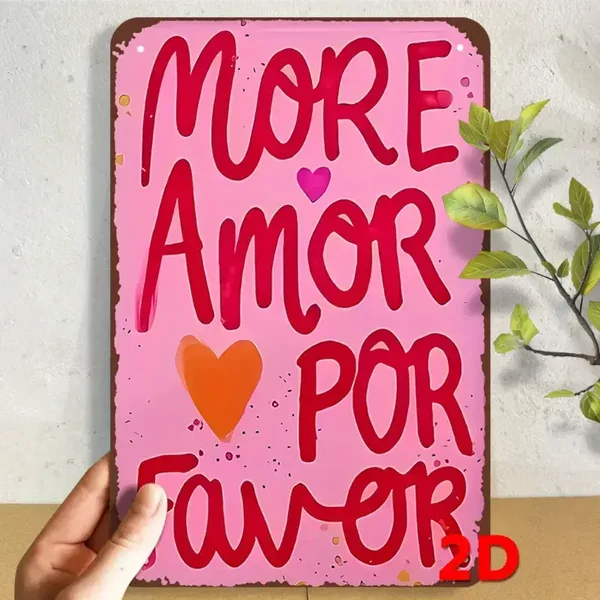 MORE
AMOR
POR
FAVOR
2D